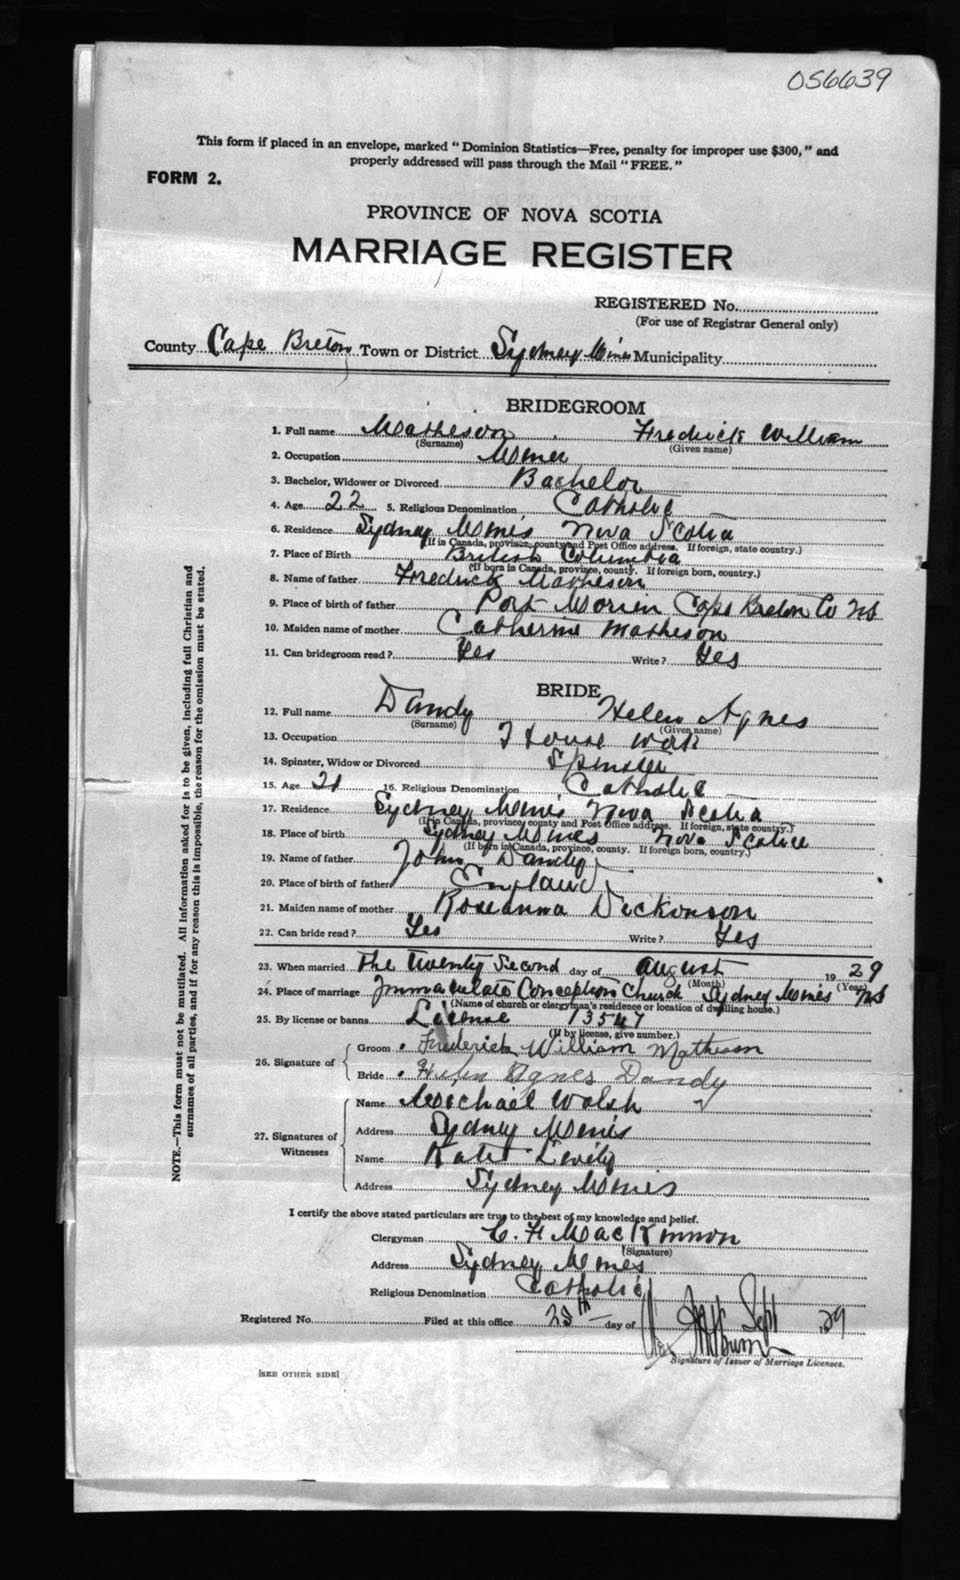 056639
This form if placed in an envelope, marked "Dominion Statistics—Free, penalty for improper use $300," and
properly addressed will pass through the Mail "FREE."
FORM 2.
PROVINCE OF NOVA SCOTIA
MARRIAGE REGISTER
REGISTERED No.
(For use of Registrar General only)
County Cape Breton Town or District Sydney Mines Municipality
BRIDEGROOM
1. Full name Matheson Fredrick William
(Surname) (Given name)
2. Occupation Miner
3. Bachelor, Widower or Divorced Bachelor
4. Age 22 5. Religious Denomination Catholic
6. Residence Sydney Mines Nova Scotia
(If in Canada, province, county and Post Office address. If foreign, state country.)
7. Place of Birth British Columbia
(If born in Canada, province, county. If foreign born, country.)
8. Name of father Fredrick Matheson
9. Place of birth of father Port Morien Cape Breton Co NS
10. Maiden name of mother Catherine Matheson
11. Can bridegroom read? Yes Write? Yes
BRIDE
12. Full name Dandy Helen Agnes
(Surname) (Given name)
13. Occupation House Work
14. Spinster, Widow or Divorced Spinster
15. Age 21 16. Religious Denomination Catholic
17. Residence Sydney Mines Nova Scotia
(If in Canada, province, county and Post Office address. If foreign, state country.)
18. Place of birth Sydney Mines Nova Scotia
(If born in Canada, province, county. If foreign born, country.)
19. Name of father John Dandy
20. Place of birth of father England
21. Maiden name of mother Roseanna Dickonson
22. Can bride read? Yes Write? Yes
23. When married The Twenty Second day of August 1929
(Month) (Year)
24. Place of marriage Immaculate Conception Church Sydney Mines NS
(Name of church or clergyman's residence or location of dwelling house.)
25. By license or banns License 13547
(If by license, give number.)
26. Signature of Groom Frederick William Matheson
Bride Helen Agnes Dandy
27. Signatures of Witnesses
Name Michael Walsh
Address Sydney Mines
Name Katie
Address Sydney Mines
I certify the above stated particulars are true to the best of my knowledge and belief.
Clergyman C. F. MacKinnon
(Signature)
Address Sydney Mines
Religious Denomination Catholic
Registered No. Filed at this office 28th day of Sept 29
Signature of Issuer of Marriage Licenses.
[SEE OTHER SIDE]
NOTE.—This form must not be mutilated. All information asked for is to be given, including full Christian and
surnames of all parties, and if for any reason this is impossible, the reason for the omission must be stated.